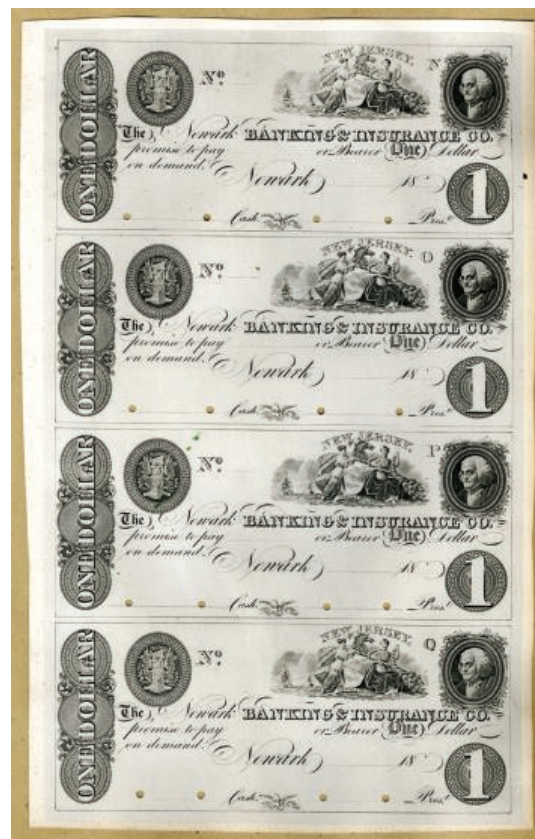 ONE DOLLAR
No
NEW JERSEY. N
The Newark BANKING & INSURANCE CO.
promise to pay or Bearer One Dollar
on demand. Newark 18
1
Cash. Pres.t
ONE DOLLAR
No
NEW JERSEY. O
The Newark BANKING & INSURANCE CO.
promise to pay or Bearer One Dollar
on demand. Newark 18
1
Cash. Pres.t
ONE DOLLAR
No
NEW JERSEY. P
The Newark BANKING & INSURANCE CO.
promise to pay or Bearer One Dollar
on demand. Newark 18
1
Cash. Pres.t
ONE DOLLAR
No
NEW JERSEY. Q
The Newark BANKING & INSURANCE CO.
promise to pay or Bearer One Dollar
on demand. Newark 18
1
Cash. Pres.t